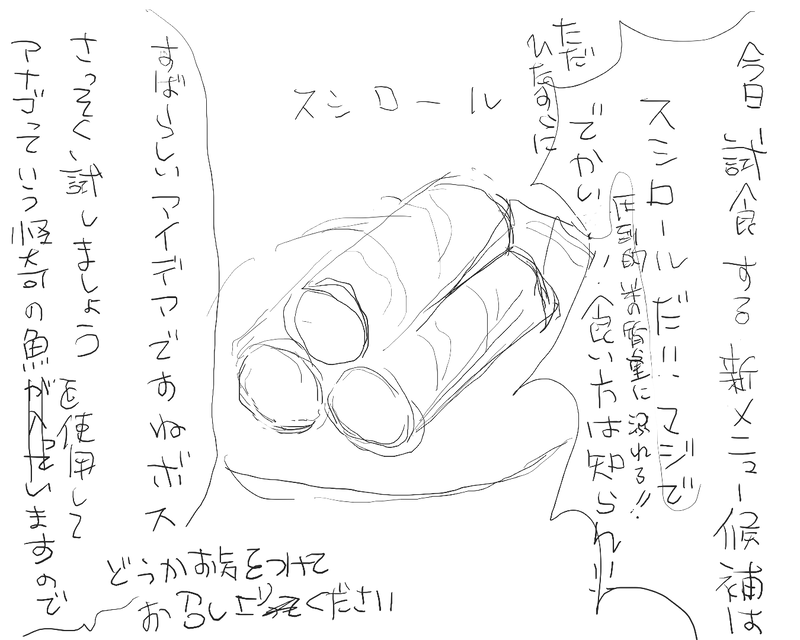 今日試食する新メニュー候補は
スシロールだ!!マジで
圧倒的米の質量に溺れる!!
でかい!!食い方は知られ!!
ただ
ひたすらに
スシロール
すばらしいアイデアですねボス
さっそく試しましょう
アナゴっていう怪奇の魚を使用していますので
どうかお気をつけて
お召し上がりください